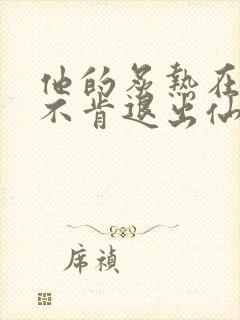 他的炙热在
不肯退出仙
席祯